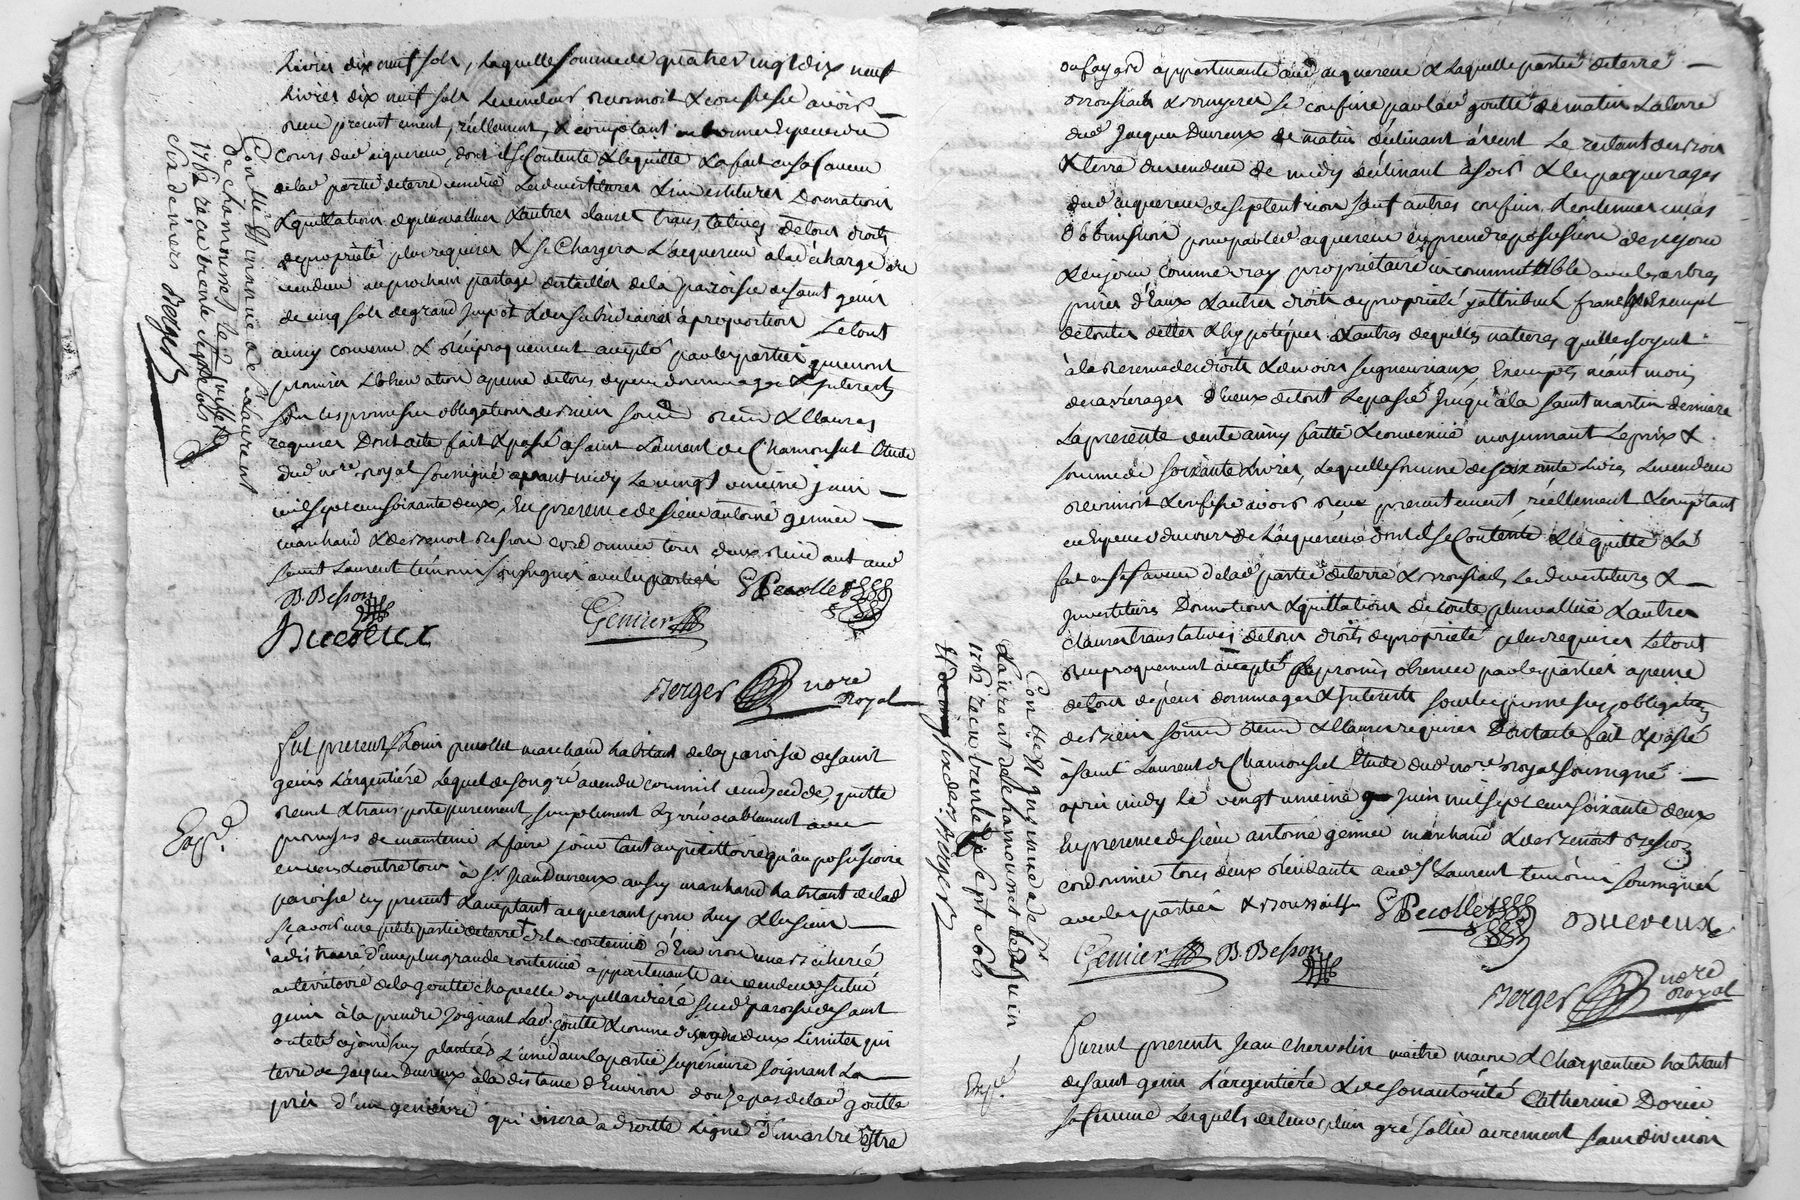 livres dix neuf sols, laquelle somme de quatre vingt dix neuf
livres dix neuf sols le vendeur reconnoit & confesse avoir
reçu presentement, réellement, & comptant en bonnes Especes du
cours dud acquereur, dont il se Contente & le quitte & a fait en sa faveur
de lad partie de terre vendüe les devestitures & investitures Donnations
& quittation de plus vallues & autres clauses translatives de tous droits
de proprieté plus requises & se Chargera L'acquereur à la décharge du
vendeur au prochain partage des tailles de la paroisse de saint genis
de cinq sols de grand Impot & des subsidiaires à proportion Le tout
ainsy convenu & réciproquement accepté par les parties qui ont
promises L'observation a peine de tous depens dommages & Interests
sous les promesses obligations de biens soumis & clauses
requises Dont acte fait & passé a saint Laurent de Chamousset Etude
dud nore royal soussigné avant midy Le vingt unieme juin
mil sept cens soixante deux, En presence de sieur antoine genier
marchand & de Benoit Besson cordonnier tous deux residant aud
saint Laurent temoins soussignés avec les parties GPecollet
B. Besson
Genier
Duevieux
Berger nore
Royal
Conlle & Insinué à St Laurent
de chamousset le
1762 reçu trente sept sols
six deniers Berger
Fut present Louis pecollet marchand habitant de la paroisse de saint
genis L'argentiére Lequel de son gré a vendu commis vend cede, quitte
remet & transporte purement, simplement & irrévocablement avec
promesses de maintenir & faire jouir tant au petittoire qu'au possessoire
envers & contre tous à Sr Jean Duvieux aussy marchand habitant de lad
paroisse icy present & acceptant acquerant pour Luy & les siens
sçavoir une petite partie de terre de la contenüe d'Environ une bicherée
à distraire d'une plus grande contenüe appartenante au vendeur scitué
au territoire de la goutte chapelle ou pillardiere sus d paroisse de saint
genis à la prendre Joignant Lad. goutte & comme désigné deux Limites qui
ont eté cejourdhuy plantées L'une dans la partie supérieure Joignant La
terre de Jacques Duvieux à la distance d'Environ douze pas de lad goutte
près d'un geniévre qui visera a droitte Ligne d'un arbre Estre
Expé.
ou fayard appartenante aud acquereur & Laquelle partie de terre
& brussiailes se confine par lad goutte de matin La terre
dud Jacques Duvieux de matin déclinant à vent Le restant des bois
& terre du vendeur de midy déclinant à soir & les paquerages
dud acquereur de septentrion sauf autres confins En
pour par led acquereur en prendre possession de ce jour
& en jouir comme vray propriétaire incommutable avec les arbres
prises d'Eaux & autres droits de proprieté y attribué franche & Exempte
de toutes dettes & hypotéques & autres de quelles natures qu'elles soyent
à la reserve des droits & devoirs seigneuriaux Exempts neantmoins
des arrérages d'iceux de tout Le passé Jusqu'à la saint martin derniere
La presente vente ainsy faitte & convenüe moyennant Le prix &
somme de soixante Livres, Laquelle somme de soixante Livres Le vendeur
reconnoit & confesse avoir reçu presentement réellement & comptant
en Especes du cours de L'acquereur dont il se Contente & le quitte & a
fait en sa faveur de lad partie de terre & broussiailes Les devestitures &
Investitures Donnations & quittations de toute plus vallüe & autres
clauses translatives de tous droits de proprieté plus requises Le tout
reciproquement accepté & promis observer par les parties a peine
de tous depens dommages & Interests sous les promesses obligations
de biens soumis & clauses requises Dont acte fait & passé
à saint Laurent de Chamousset Etude dud nore royal soussigné
apres midy le vingt unieme Juin mil sept cens soixante deux
En presence de sieur antoine genier marchand & de Benoit Besson
cordonnier tous deux residants aud St Laurent temoins soussignés
avec les parties & broussailles GPecollet Duevieux
Genier B. Besson
Berger nore
Royal
Conlle & Insinué à St
Laurent de chamousset le Juin
1762 reçu trente sept sols
six ders Berger
Furent presents Jean Chervolin maitre masson & Charpentier habitant
de saint genis L'argentiére & de son autorité Catherine Dorier
sa femme Lesquels de leur plein gré sollidairement sans division
Expé.